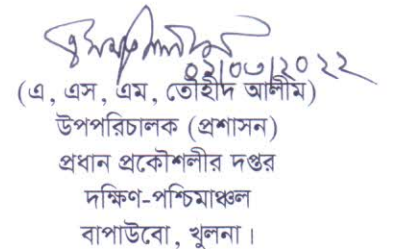 ০২/০৩/২০২২
(এ, এস, এম, তৌহীদ আলীম)
উপপরিচালক (প্রশাসন)
প্রধান প্রকৌশলীর দপ্তর
দক্ষিণ-পশ্চিমাঞ্চল
বাপাউবো, খুলনা।